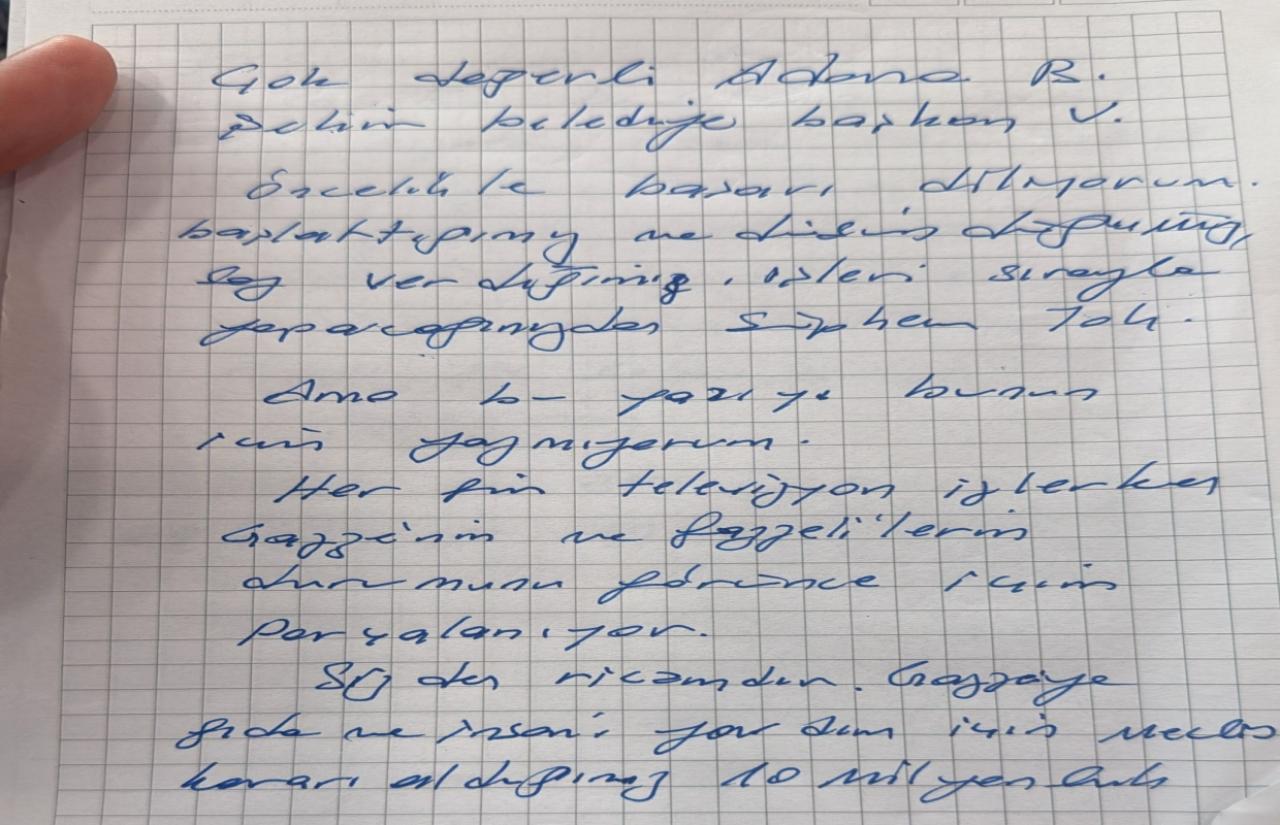 Çok değerli Adana B.
Şehir belediye başkan V.
Öncelikle başarı diliyorum.
başlattığınız ve
söz verdiğiniz. işleri sırayla
yapacağınızdan şüphem Yok.
Ama bu yazıyı bunun
için yazmıyorum.
Her gün televizyon izlerken
Gazze'nin ve gazzeli'lerin
durumunu görünce içim
parçalanıyor.
Sizden ricamdır. Gazzeye
gıda ve insani yardım için meclis
kararı aldığınız 10 milyonluk